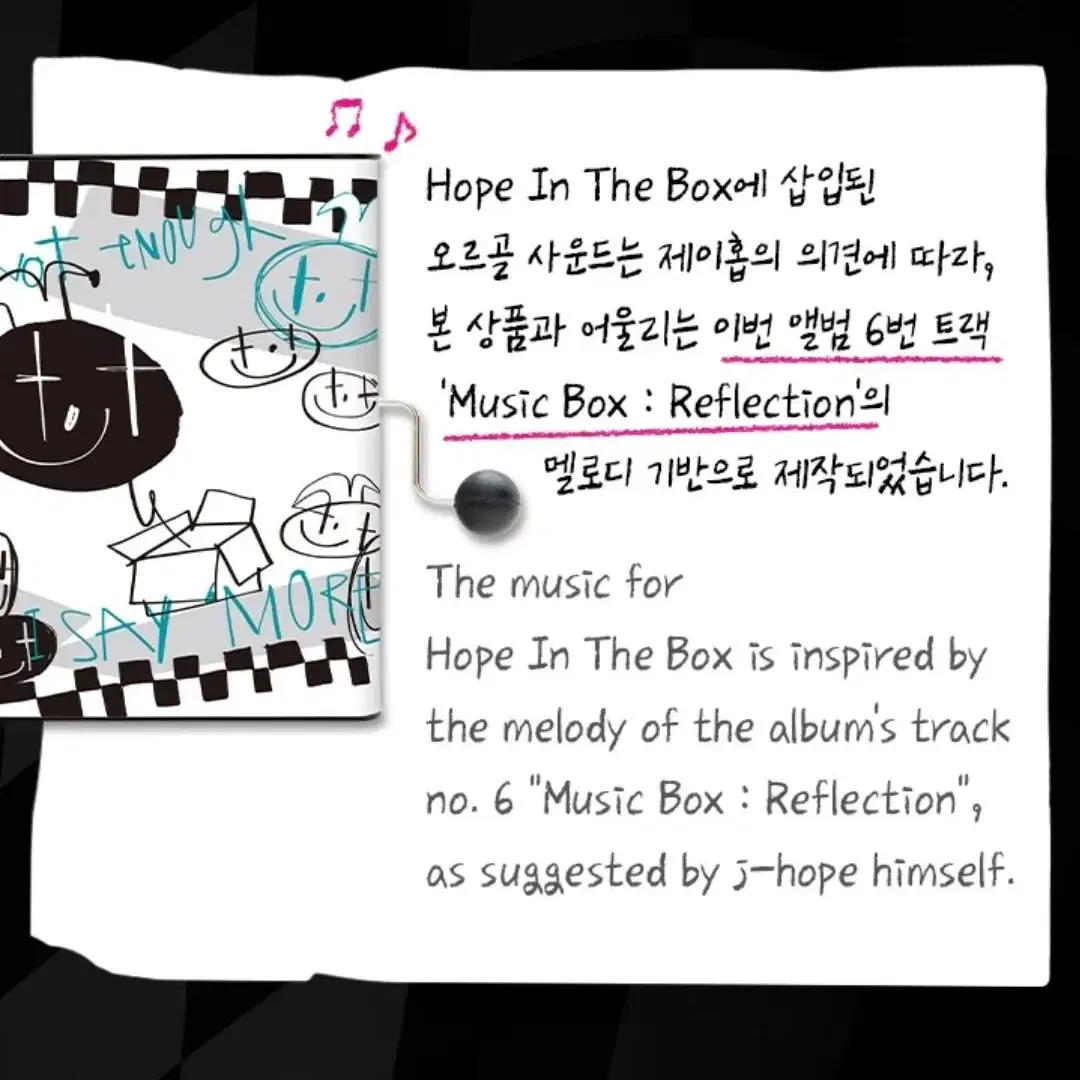 not enough
I SAY MORE
Hope In The Box에 삽입된
오르골 사운드는 제이홉의 의견에 따라,
본 상품과 어울리는 이번 앨범 6번 트랙
'Music Box : Reflection'의
멜로디 기반으로 제작되었습니다.
The music for
Hope In The Box is inspired by
the melody of the album's track
no. 6 "Music Box : Reflection",
as suggested by j-hope himself.